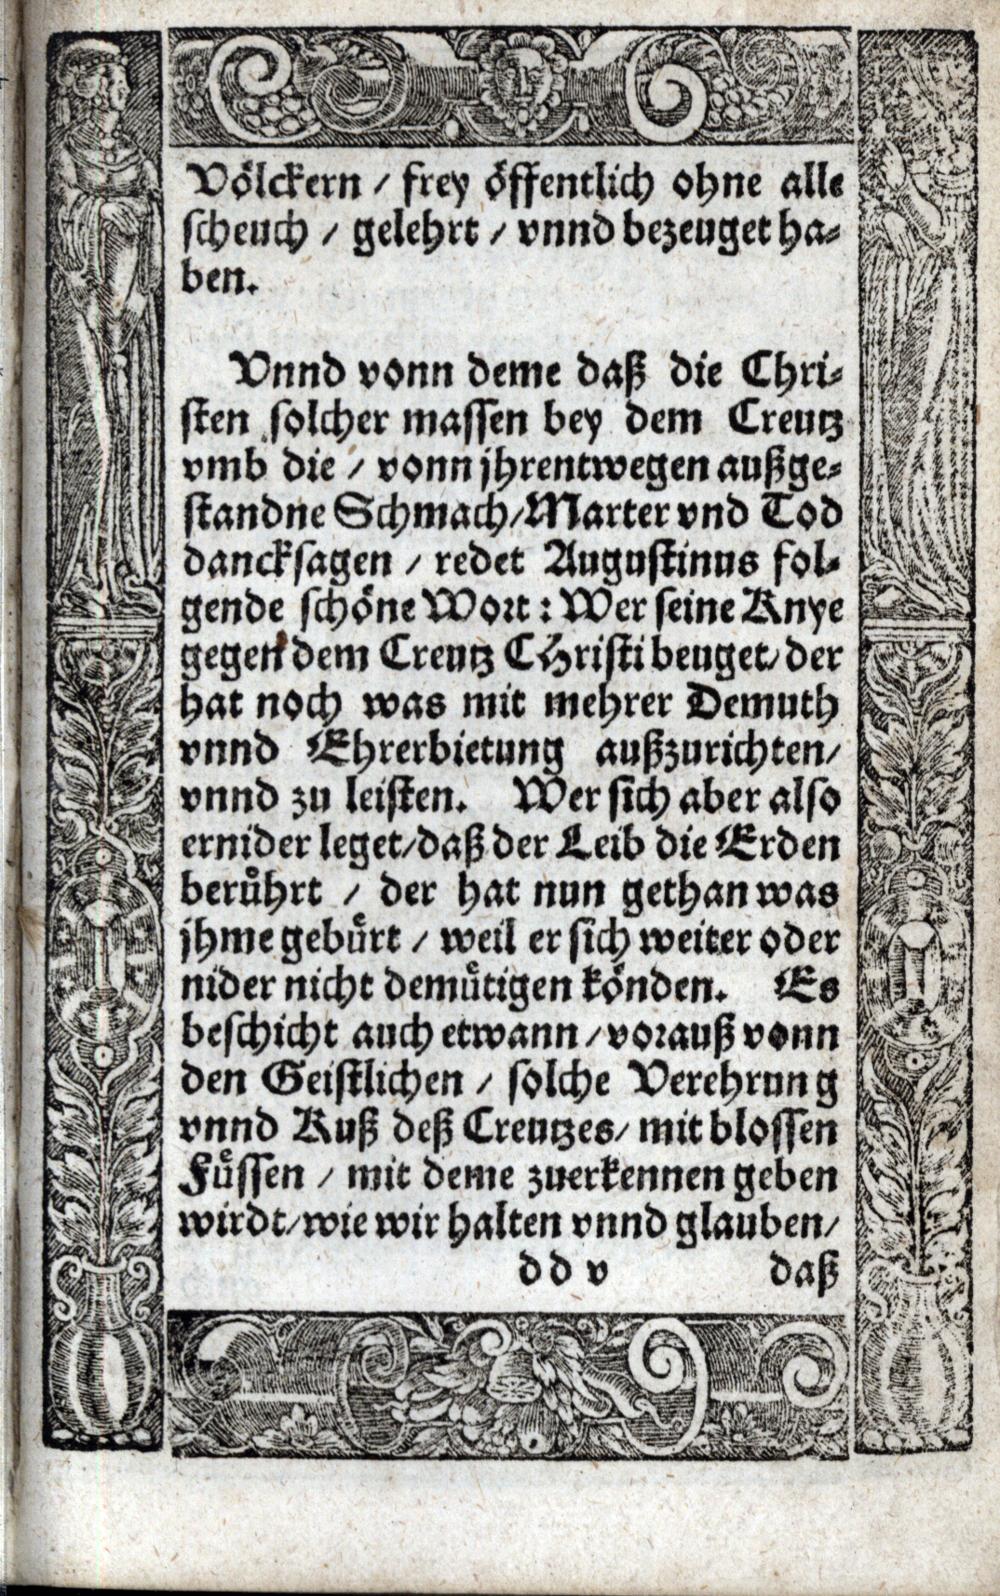 Völckern / frey öffentlich ohne alle
scheuch / gelehrt / vnnd bezeuget ha⸗
ben.
Vnnd vonn deme daß die Chri⸗
sten solcher massen bey dem Creutz
vmb die / vonn jhrentwegen außge⸗
standne Schmach/Marter vnd Tod
dancksagen / redet Augustinus fol⸗
gende schöne Wort : Wer seine Knye
gegen dem Creutz CHristi beuget/ der
hat noch was mit mehrer Demuth
vnnd Ehrerbietung außzurichten/
vnnd zu leisten. Wer sich aber also
ernider leget/daß der Leib die Erden
berührt / der hat nun gethan was
jhme gebürt / weil er sich weiter oder
nider nicht demütigen könden. Es
beschicht auch etwann / vorauß vonn
den Geistlichen / solche Verehrung
vnnd Kuß deß Creutzes/ mit blossen
Füssen / mit deme zuerkennen geben
wirdt/wie wir halten vnnd glauben/
d d v daß